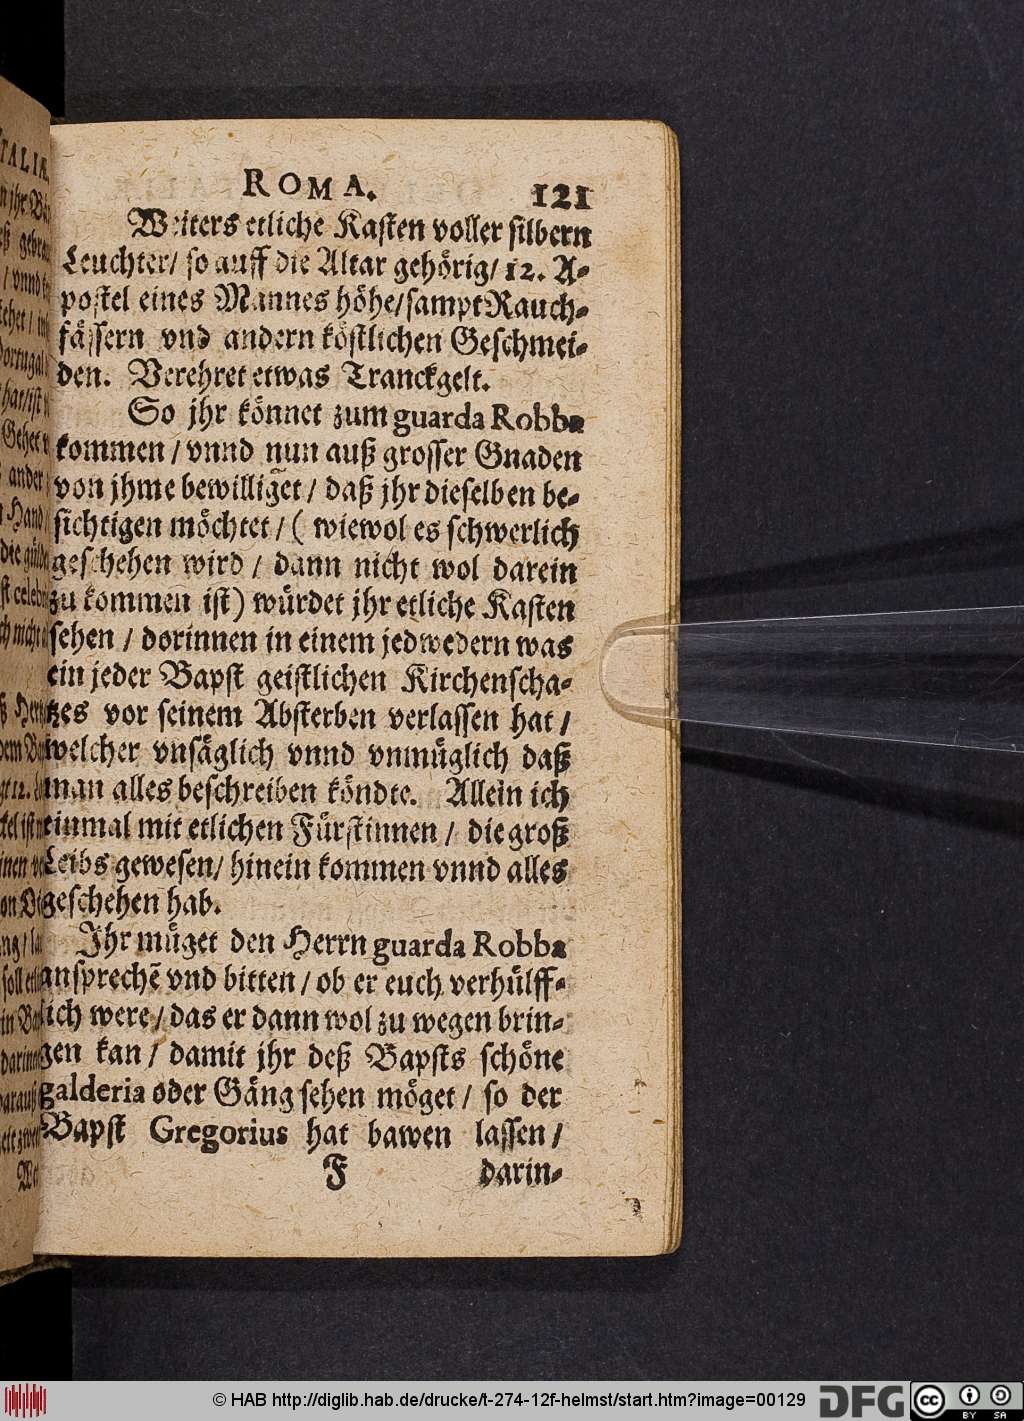 ROMA. 121
Weiters etliche Kasten voller silbern
Leuchter/ so auff die Altar gehörig/ 12. A-
postel eines Mannes höhe/sampt Rauch-
fässern vnd andern köstlichen Geschmei-
den. Verehret etwas Tranckgelt.
So jhr könnet zum guarda Robba
kommen / vnnd nun auß grosser Gnaden
von jhme bewilliget / daß jhr dieselben be-
sichtigen möchtet / ( wiewol es schwerlich
geschehen wird / dann nicht wol darein
zu kommen ist) würdet jhr etliche Kasten
sehen / dorinnen in einem jedwedern was
ein jeder Bapst geistlichen Kirchenscha-
tzes vor seinem Absterben verlassen hat /
welcher vnsäglich vnnd vnmüglich daß
man alles beschreiben köndte. Allein ich
einmal mit etlichen Fürstinnen / die groß
Leibs gewesen/ hinein kommen vnnd alles
geschehen hab.
Jhr müget den Herrn guarda Robba
ansprechē vnd bitten / ob er euch verhülff-
lich were / das er dann wol zu wegen brin-
gen kan / damit jhr deß Bapsts schöne
galderia oder Gäng sehen möget / so der
Bapst Gregorius hat bawen lassen /
F darin-
© HAB http://diglib.hab.de/drucke/t-274-12f-helmst/start.htm?image=00129
DFG
cc BY SA